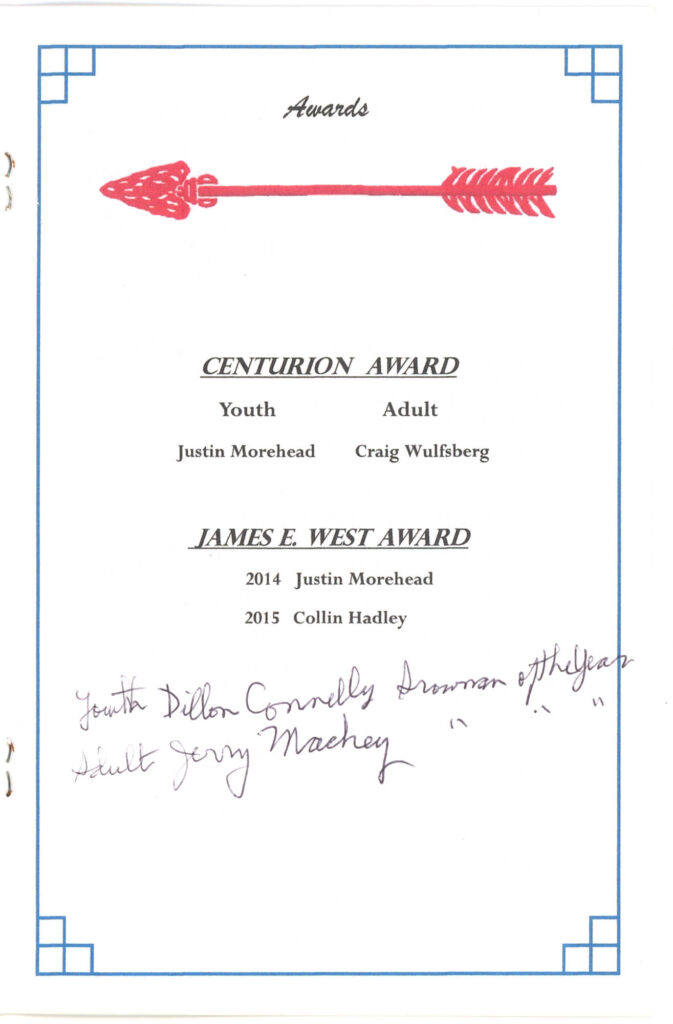 Awards
CENTURION AWARD
Youth Adult
Justin Morehead Craig Wulfsberg
JAMES E. WEST AWARD
2014 Justin Morehead
2015 Collin Hadley
Youth Dillon Connelly Arowman of the Year
Adult Jerry Mackey " " "